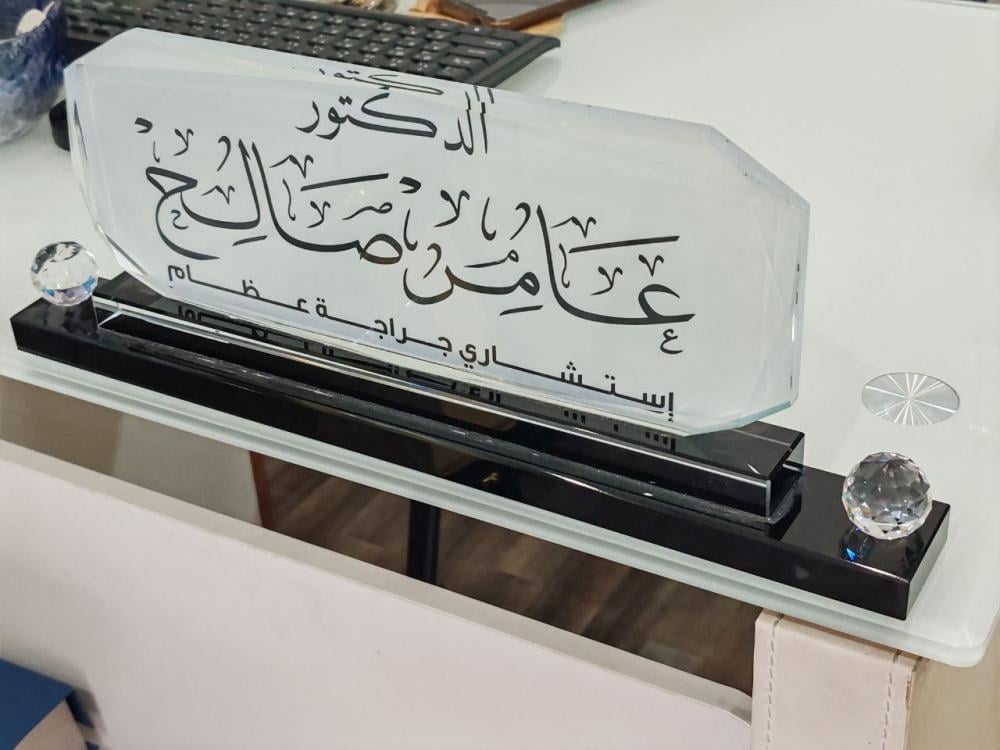 الدكتور
عامر صالح
إستشاري جراجة عظام